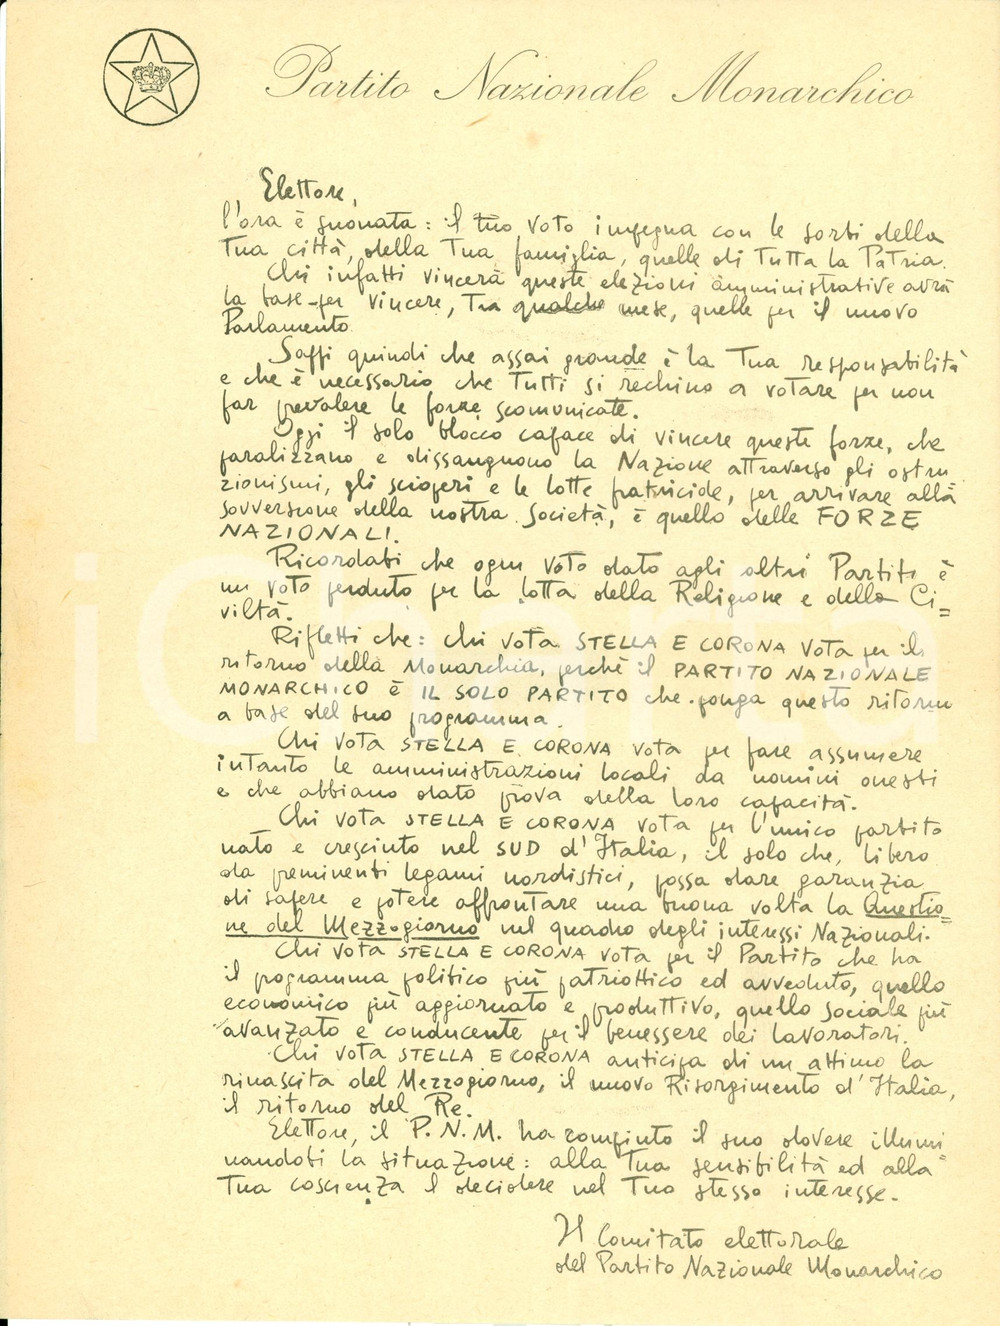 Partito Nazionale Monarchico
Elettore,
l'ora è suonata: il tuo voto impegna con le sorti della
Tua città, della Tua famiglia, quelle di Tutta la Patria.
Chi infatti vincerà queste elezioni amministrative avrà
la base per vincere, Tra qualche mese, quelle per il nuovo
Parlamento.
Sappi quindi che assai grande è la Tua responsabilità
e che è necessario che Tutti si rechino a votare per non
far prevalere le forze scomunicate.
Oggi il solo blocco capace di vincere queste forze, che
paralizzano e dissanguano la Nazione attraverso gli ostru
zionismi, gli scioperi e le lotte fratricide, per arrivare alla
sovversione della nostra Società, è quello delle FORZE
NAZIONALI.
Ricordati che ogni voto dato agli altri Partiti è
un voto perduto per la lotta della Religione e della Ci=
viltà.
Rifletti che: chi vota STELLA E CORONA vota per il
ritorno della Monarchia, perchè il PARTITO NAZIONALE
MONARCHICO è IL SOLO PARTITO che ponga questo ritorno
a base del suo programma.
Chi vota STELLA E CORONA vota per fare assumere
intanto le amministrazioni locali da uomini onesti
e che abbiano dato prova della loro capacità.
Chi vota STELLA E CORONA vota per l'unico partito
nato e cresciuto nel SUD d'Italia, il solo che, libero
da preminenti legami nordistici, possa dare garanzia
di sapere e potere affrontare una buona volta la Questio=
ne del Mezzogiorno nel quadro degli interessi Nazionali.
Chi vota STELLA E CORONA vota per il Partito che ha
il programma politico più patriottico ed avveduto, quello
economico più aggiornato e produttivo, quello sociale più
avanzato e conducente per il benessere dei lavoratori.
Chi vota STELLA E CORONA anticipa di un attimo la
rinascita del Mezzogiorno, il nuovo Risorgimento d'Italia,
il ritorno del Re.
Elettore, il P.N.M. ha compiuto il suo dovere illumi=
nandoti la situazione: alla Tua sensibilità ed alla
Tua coscienza il decidere nel Tuo stesso interesse.
Il Comitato elettorale
del Partito Nazionale Monarchico